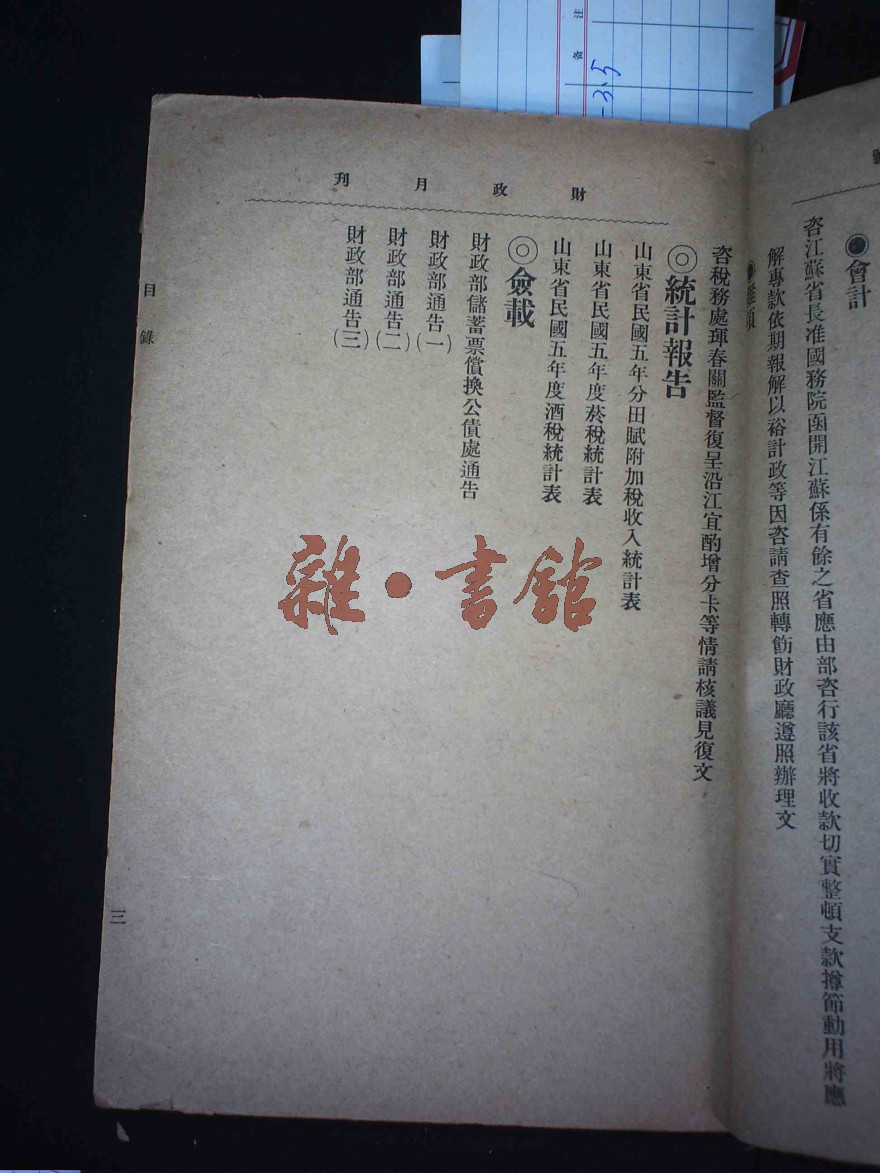 ●會計
咨江蘇省長准國務院函開江蘇係有餘之省應由部咨行該省將收款切實整頓支款撙節動用將應
解專款依期報解以裕計政等因咨請查照轉飭財政廳遵照辦理文
財政月刊
咨稅務處琿春關監督復呈沿江宜酌增分卡等情請核議見復文
◎統計報告
山東省民國五年分田賦附加稅收入統計表
山東省民國五年度菸稅統計表
山東省民國五年度酒稅統計表
◎僉載
財政部儲蓄票償換公債處通告
財政部通告(一)
財政部通告(二)
財政部通告(三)
目錄
三
雜·書館
備注
-3.5